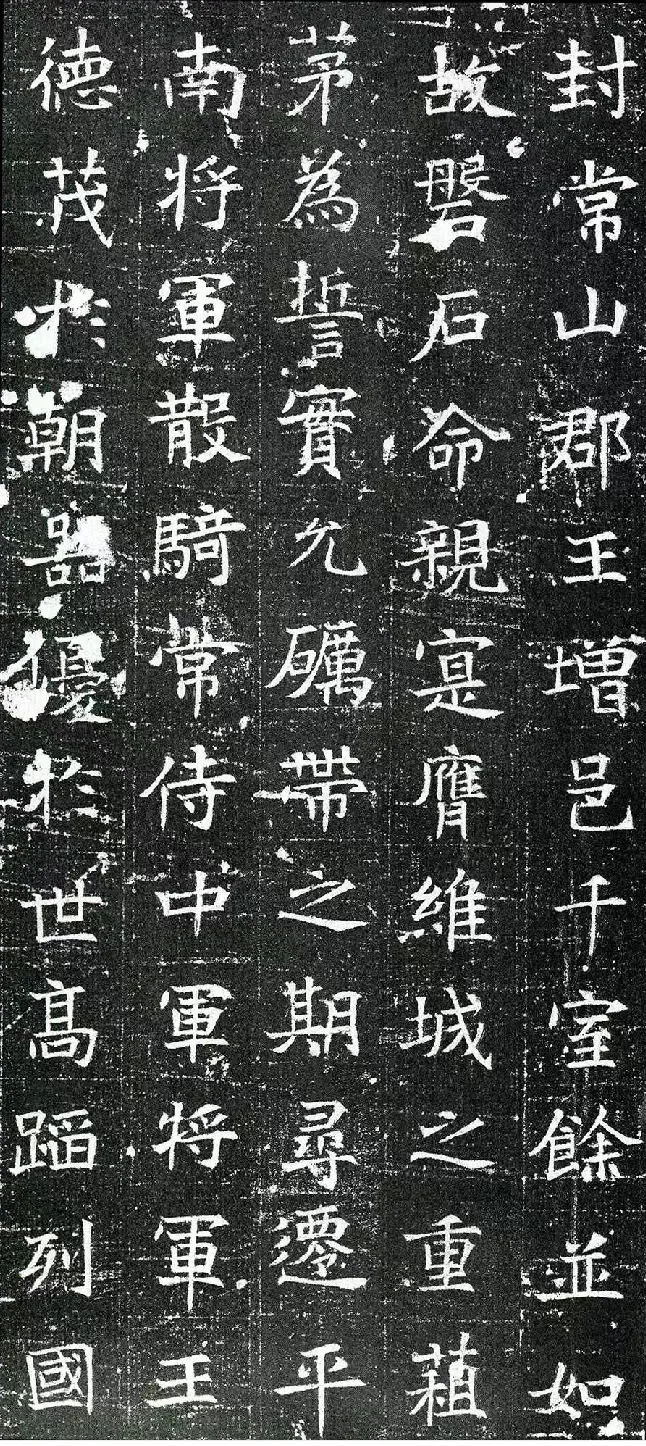 封常山郡王增邑千室餘並如
故磐石命親寔膺維城之重蒩
茅為誓實允礪帶之期尋遷平
南將軍散騎常侍中軍將軍王
德茂於朝器優於世高蹈列國